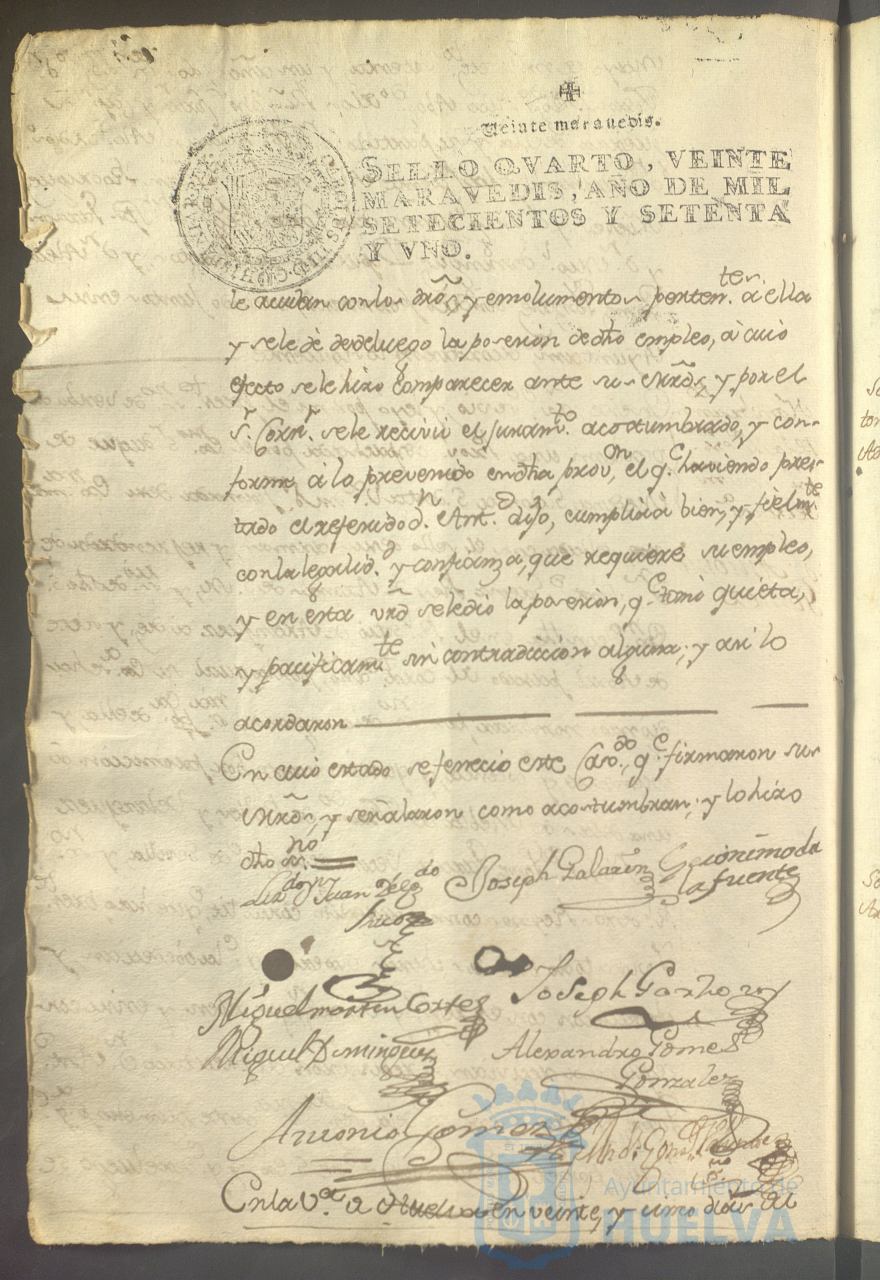 Veinte maravedis.
SELLO QVARTO, VEINTE
MARAVEDIS, AÑO DE MIL
SETECIENTOS Y SETENTA
Y VNO.
le acudan con los dros, y emolumentos perten.tes a ella
y se le dè desde luego la posesion de dho empleo, à cuio
efecto se le hizo comparecer ante sus mrds, y por el
s.r Corr.r se le recivió el juram.to acostumbrado, y con-
forme à lo prevenido en dha prov.on, el q.e haviendo pres-
tado el referido d.n Ant.o dijo, cumplirà bien, y fielm.te
con la legalid.d y confianza, que requiere su empleo,
y en esta vrd se le dió la posesion, q.e tomó quieta,
y pacificam.te sin contradiccion alguna; y asi lo
acordaron
En cuio estado se feneció este Cav.do, q.e firmaron sus
mrds, y señalaron como acostumbran; y lo hizo
dho
Juan Joseph Galazin Geronimo de
la fuente
Miguel martin Cortes Joseph Garzon
Miguel Dominguez Alexandro Gomes
Gonzalez
Antonio Gomez
En la V.a de Huelva en veinte, y uno dias de
Ayuntamiento de
HUELVA